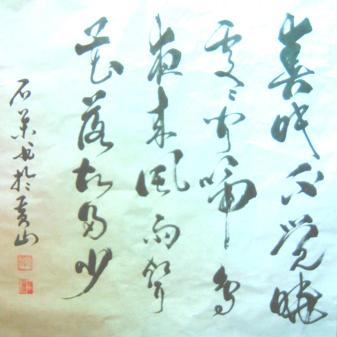 春眠不觉晓
处处闻啼鸟
夜来风雨声
花落知多少
石书于黄山